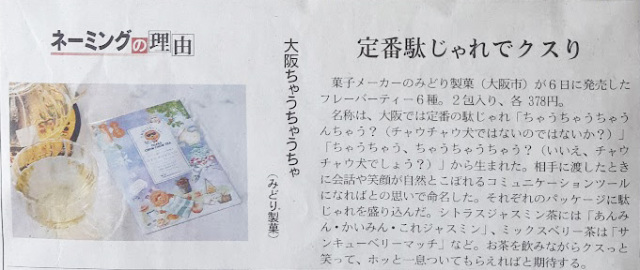 ネーミングの理由
大阪ちゃうちゃうちゃ
（みどり製菓）
定番駄じゃれでクスり
菓子メーカーのみどり製菓（大阪市）が６日に発売した
フレーバーティー６種。２包入り、各 378円。
名称は、大阪では定番の駄じゃれ「ちゃうちゃうちゃう
んちゃう？（チャウチャウ犬ではないのではないか？）」
「ちゃうちゃう、ちゃうちゃうちゃう？（いいえ、チャウ
チャウ犬でしょう？）」から生まれた。相手に渡したとき
に会話や笑顔が自然とこぼれるコミュニケーションツール
になればとの思いで命名した。それぞれのパッケージに駄
じゃれを盛り込んだ。シトラスジャスミン茶には「あんみ
ん・かいみん・これジャスミン」、ミックスベリー茶は「サ
ンキューベリーマッチ」など。お茶を飲みながらクスっと
笑って、ホッと一息ついてもらえればと期待する。